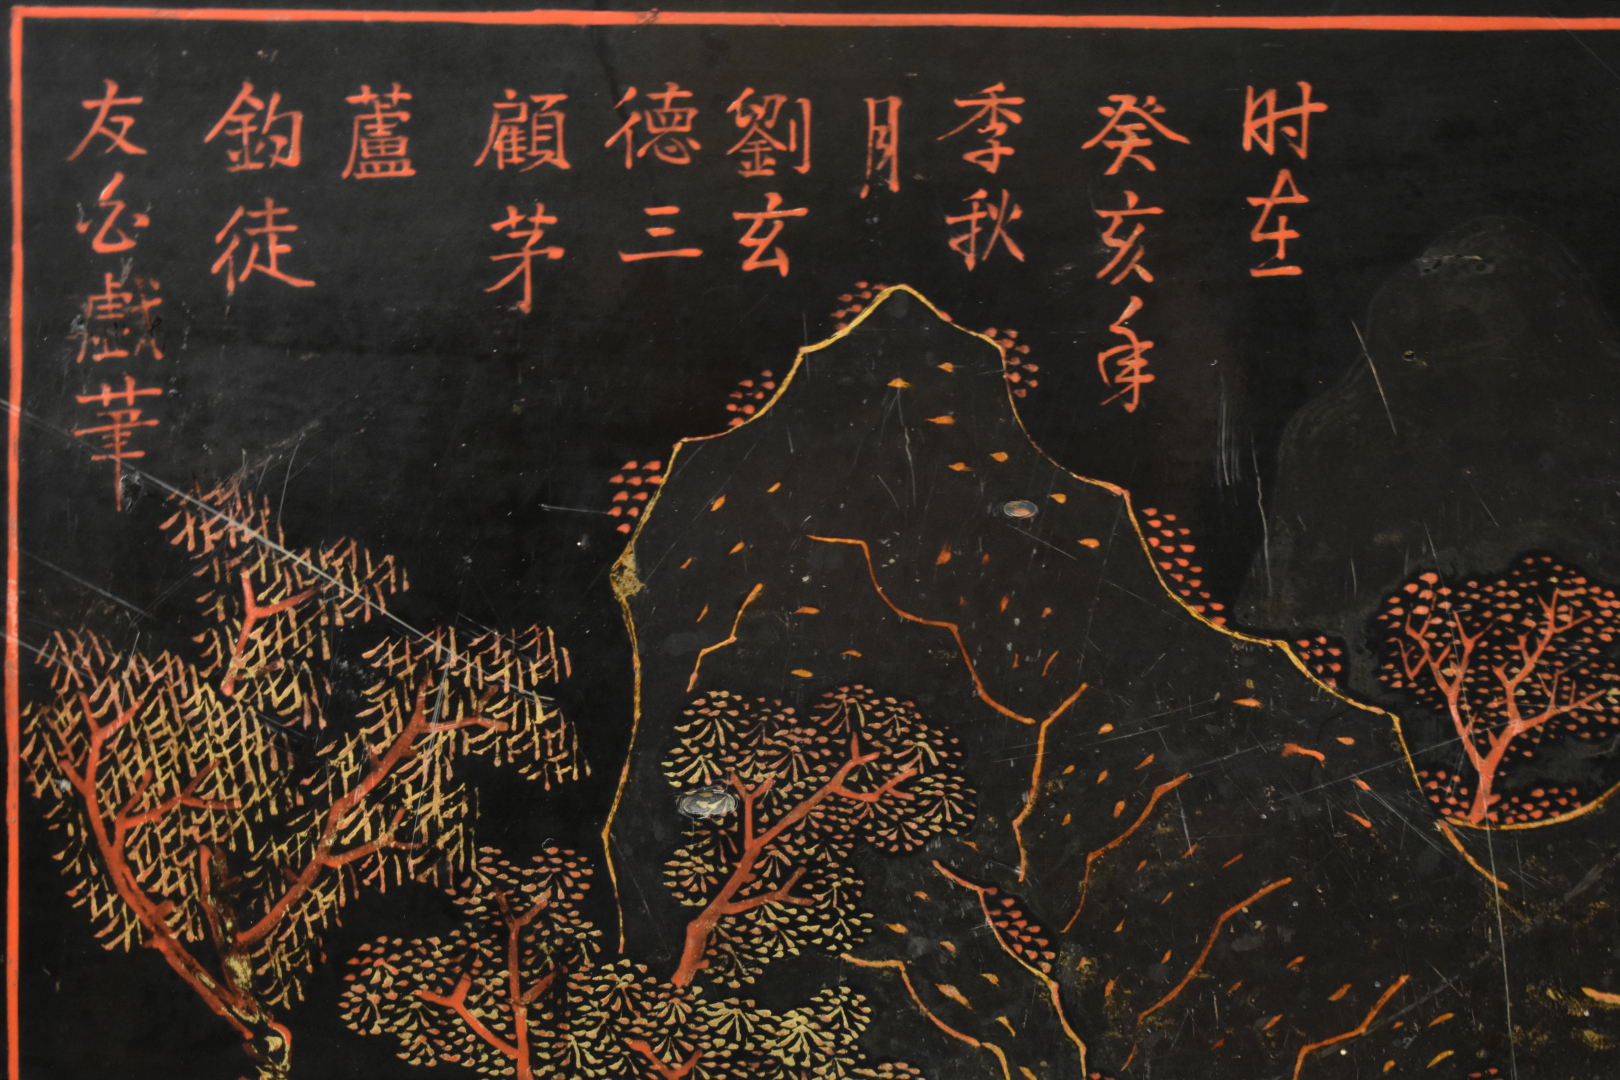 时在
癸亥年
季秋
月
劉玄
德三
顧茅
蘆
釣徒
友公戲筆